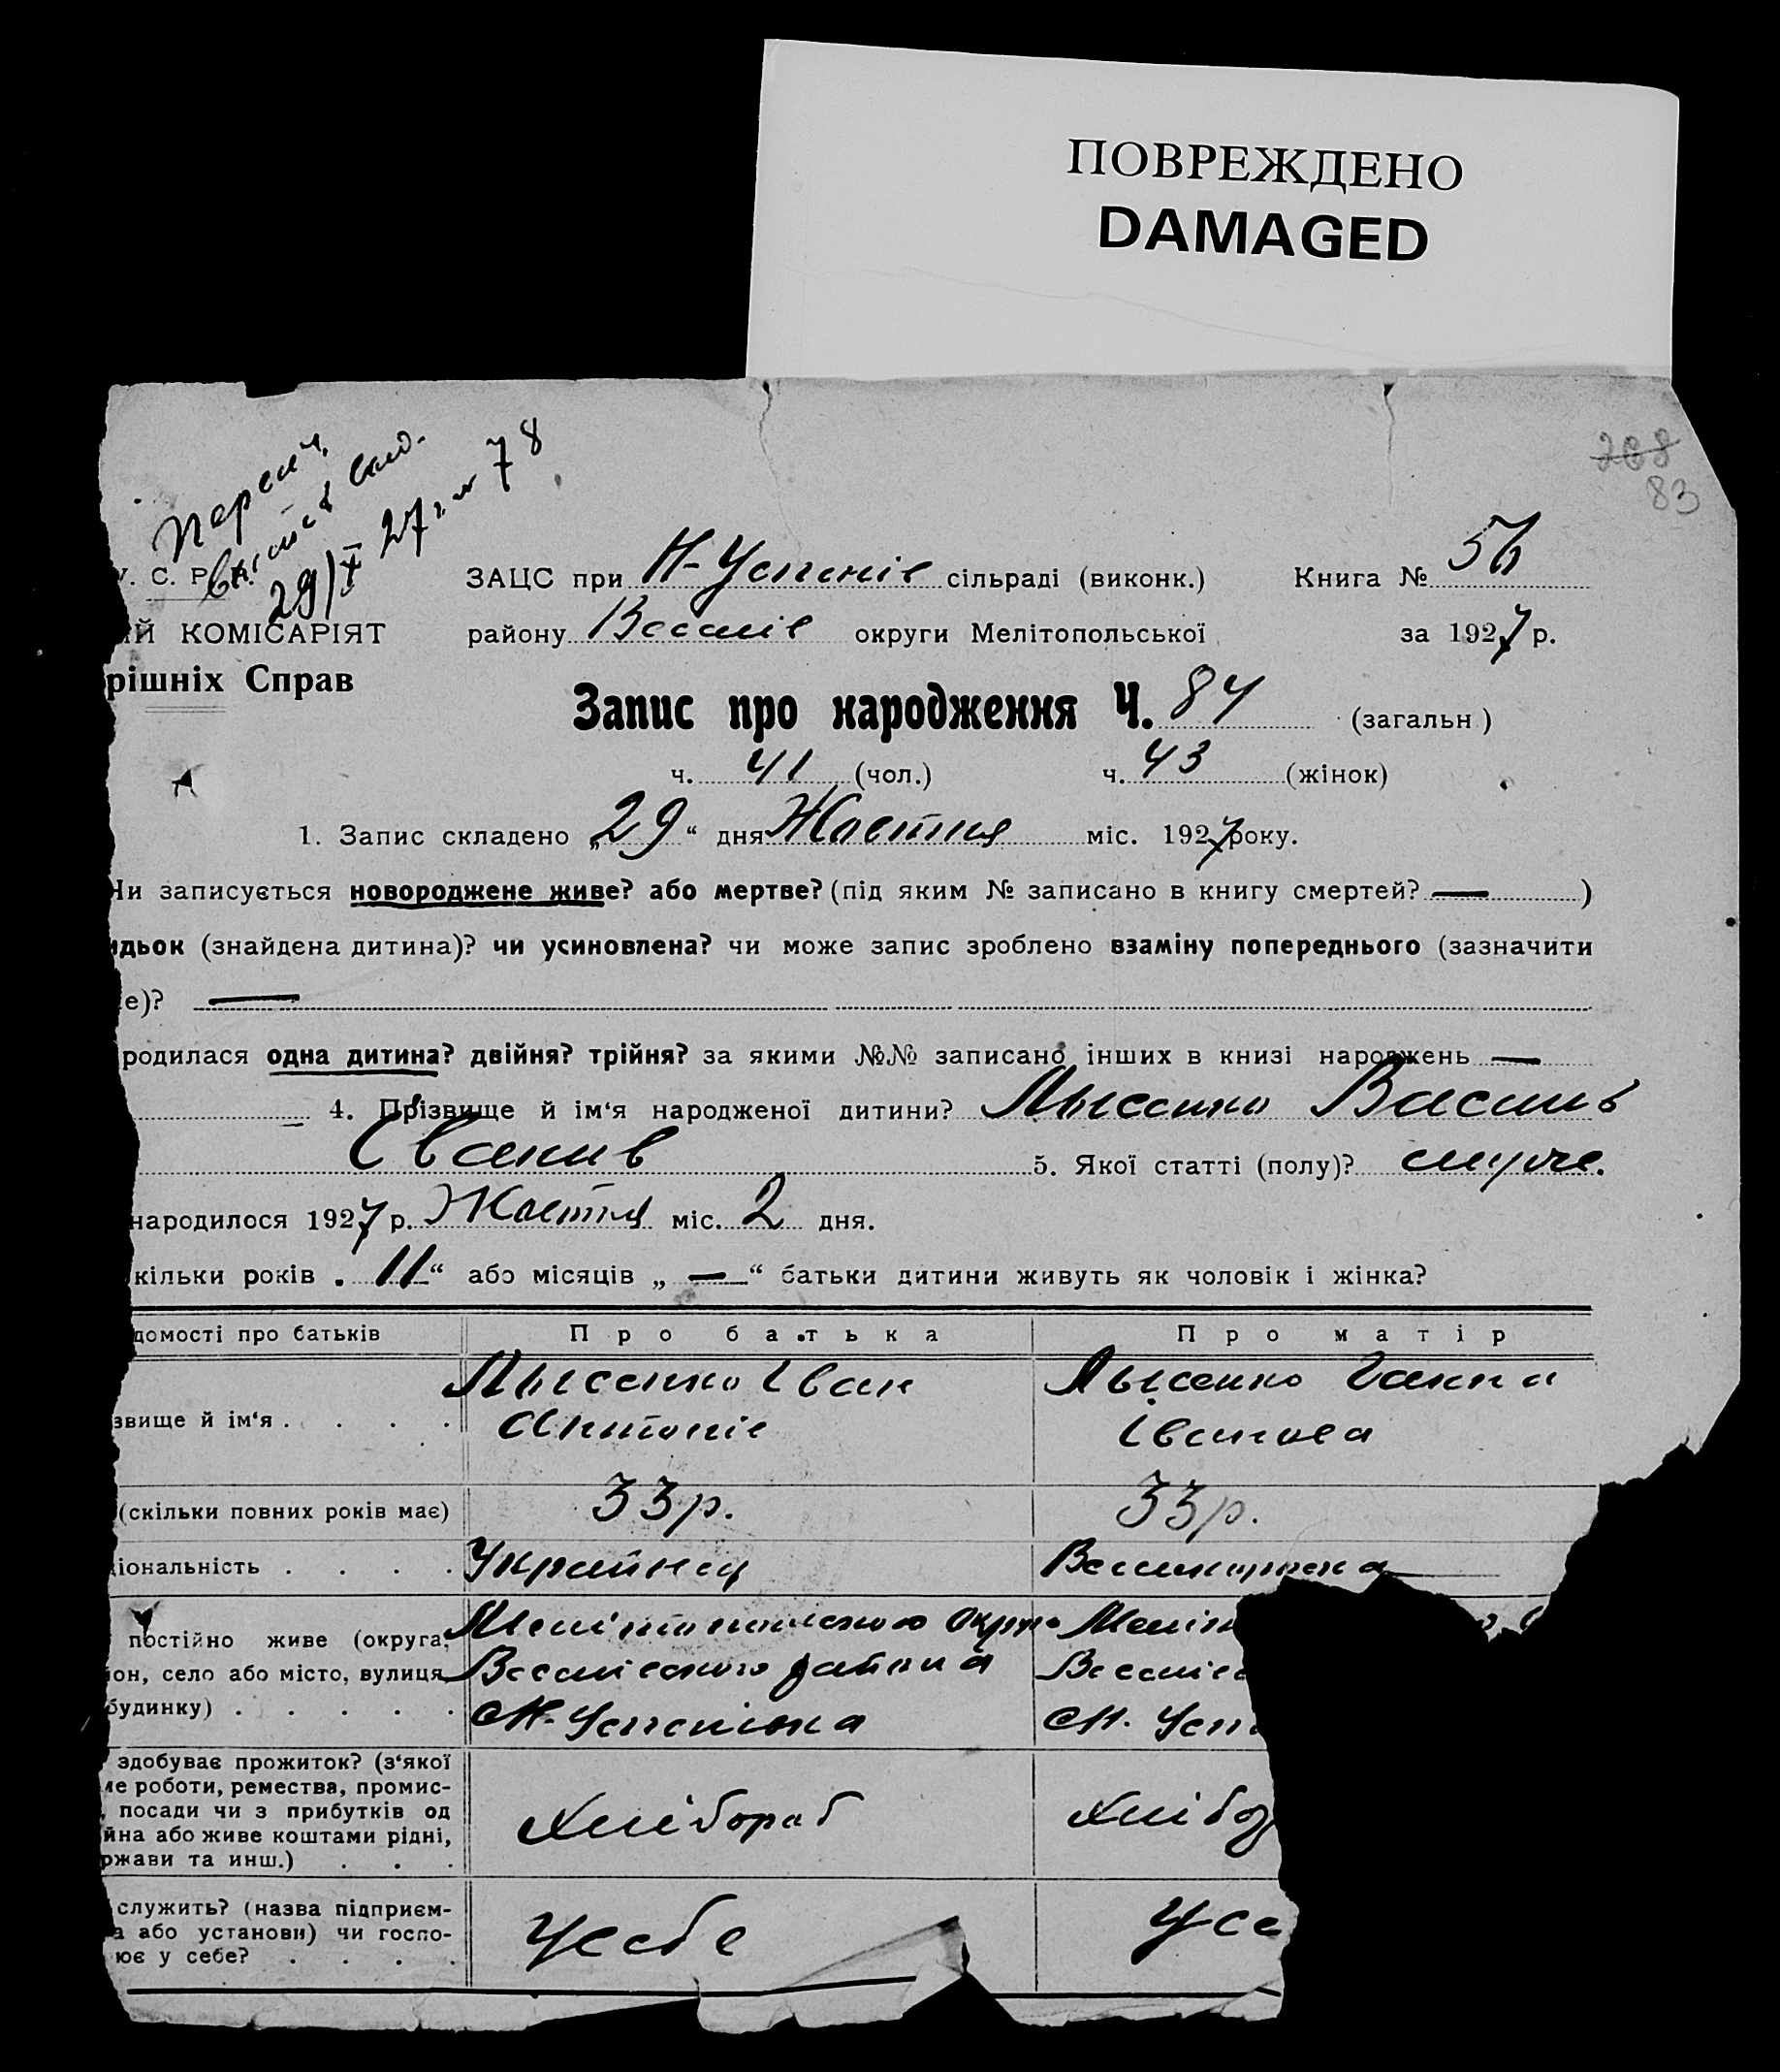 ПОВРЕЖДЕНО
DAMAGED
268
83
29/X 27 78
У. С. Р. Р.
ИЙ КОМІСАРІЯТ
рішніх Справ
ЗАЦС при Н-Успенів сільраді (виконк.) Книга № 56
району Веселів округи Мелітопольської за 1927 р.
Запис про народження Ч. 84 (загальн.)
ч. 41 (чол.) ч. 43 (жінок)
1. Запис складено „29“ дня Жовтня міс. 1927 року.
Чи записується новороджене живе? або мертве? (під яким № записано в книгу смертей? — )
идьок (знайдена дитина)? чи усиновлена? чи може запис зроблено взаміну попереднього (зазначити
е)? —
родилася одна дитина? двійня? трійня? за якими №№ записано інших в книзі народжень —
4. Прізвище й ім‘я народженої дитини? Лысенко Василь
Іванив 5. Якої статті (полу)? муже.
народилося 1927 р. Жовтня міс. 2 дня.
кільки років „11“ або місяців „ — “ батьки дитини живуть як чоловік і жінка?
домості про батьків Про батька Про матір
звище й ім‘я . . . . Лысенко Іван Лысенко Ганна
Антонів Іванова
(скільки повних років має) 33 р. 33 р.
ціональність . . . . Украинец
постійно живе (округа, Мелітопольского Окр Меліт
он, село або місто, вулиця Веселівского района Веселівс
будинку) . . . . . с Н-Успенівка с Н. Усп
здобуває прожиток? (з‘якої
ме роботи, ремества, промис-
, посади чи з прибутків од
йна або живе коштами рідні,
ржави та инш.) . . . Хлібораб Хлібо
служить? (назва підприєм-
а або установи) чи госпо-
ює у себе? . . . . Усебе Усе